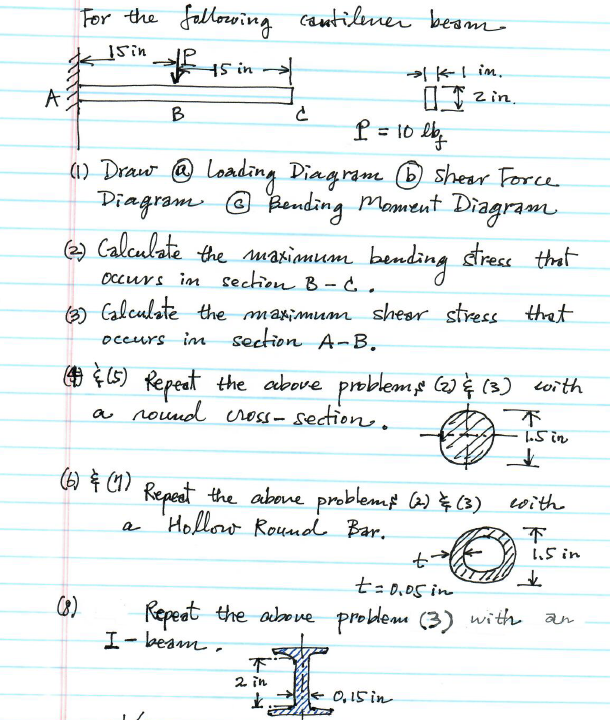 For the following cantilever beam.
15 in P 15 in 1 in.
2 in.
A B C
P = 10 lbf
(1) Draw (a) Loading Diagram (b) Shear Force
Diagram (c) Bending Moment Diagram
(2) Calculate the maximum bending stress that
occurs in section B-C.
(3) Calculate the maximum shear stress that
occurs in section A-B.
(4) & (5) Repeat the above problems (2) & (3) with
a round cross-section.
1.5 in
(6) & (7) Repeat the above problems (2) & (3) with
a Hollow Round Bar.
t 1.5 in
t = 0.05 in
(8) Repeat the above problem (3) with an
I-beam.
2 in
0.15 in